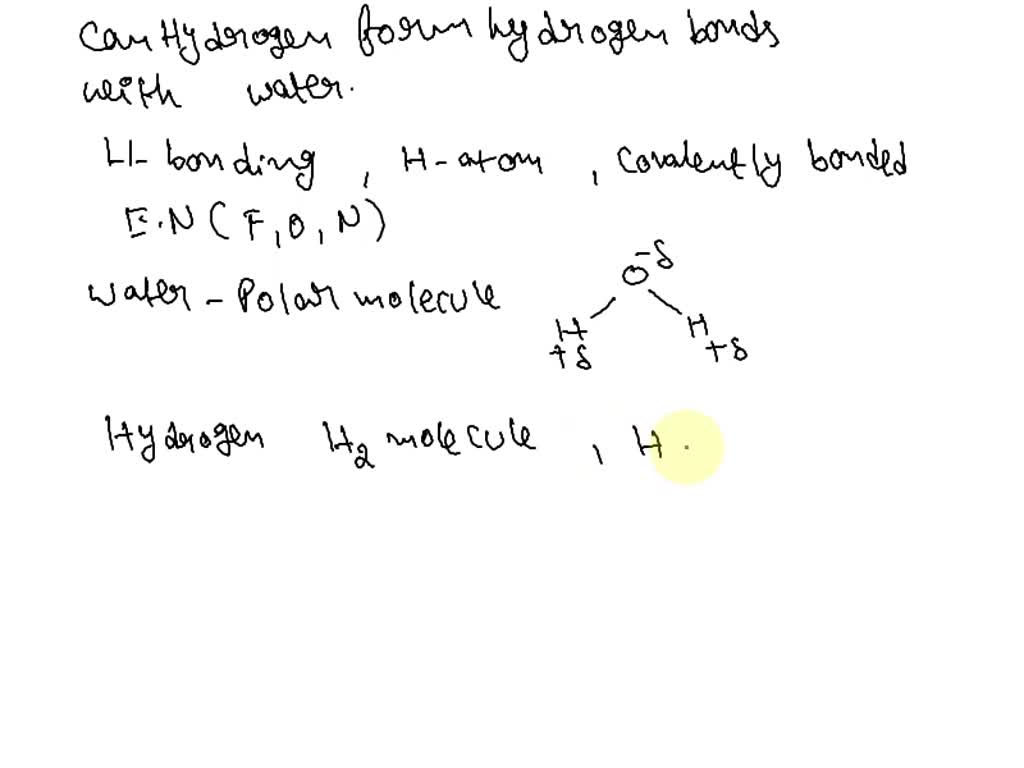 Can Hydrogen form hydrogen bonds
with water.
H-bonding, H-atom, covalently bonded
E.N (F, O, N)
water - Polar molecule
O -δ
H H
+δ +δ
Hydrogen H2 molecule, H.